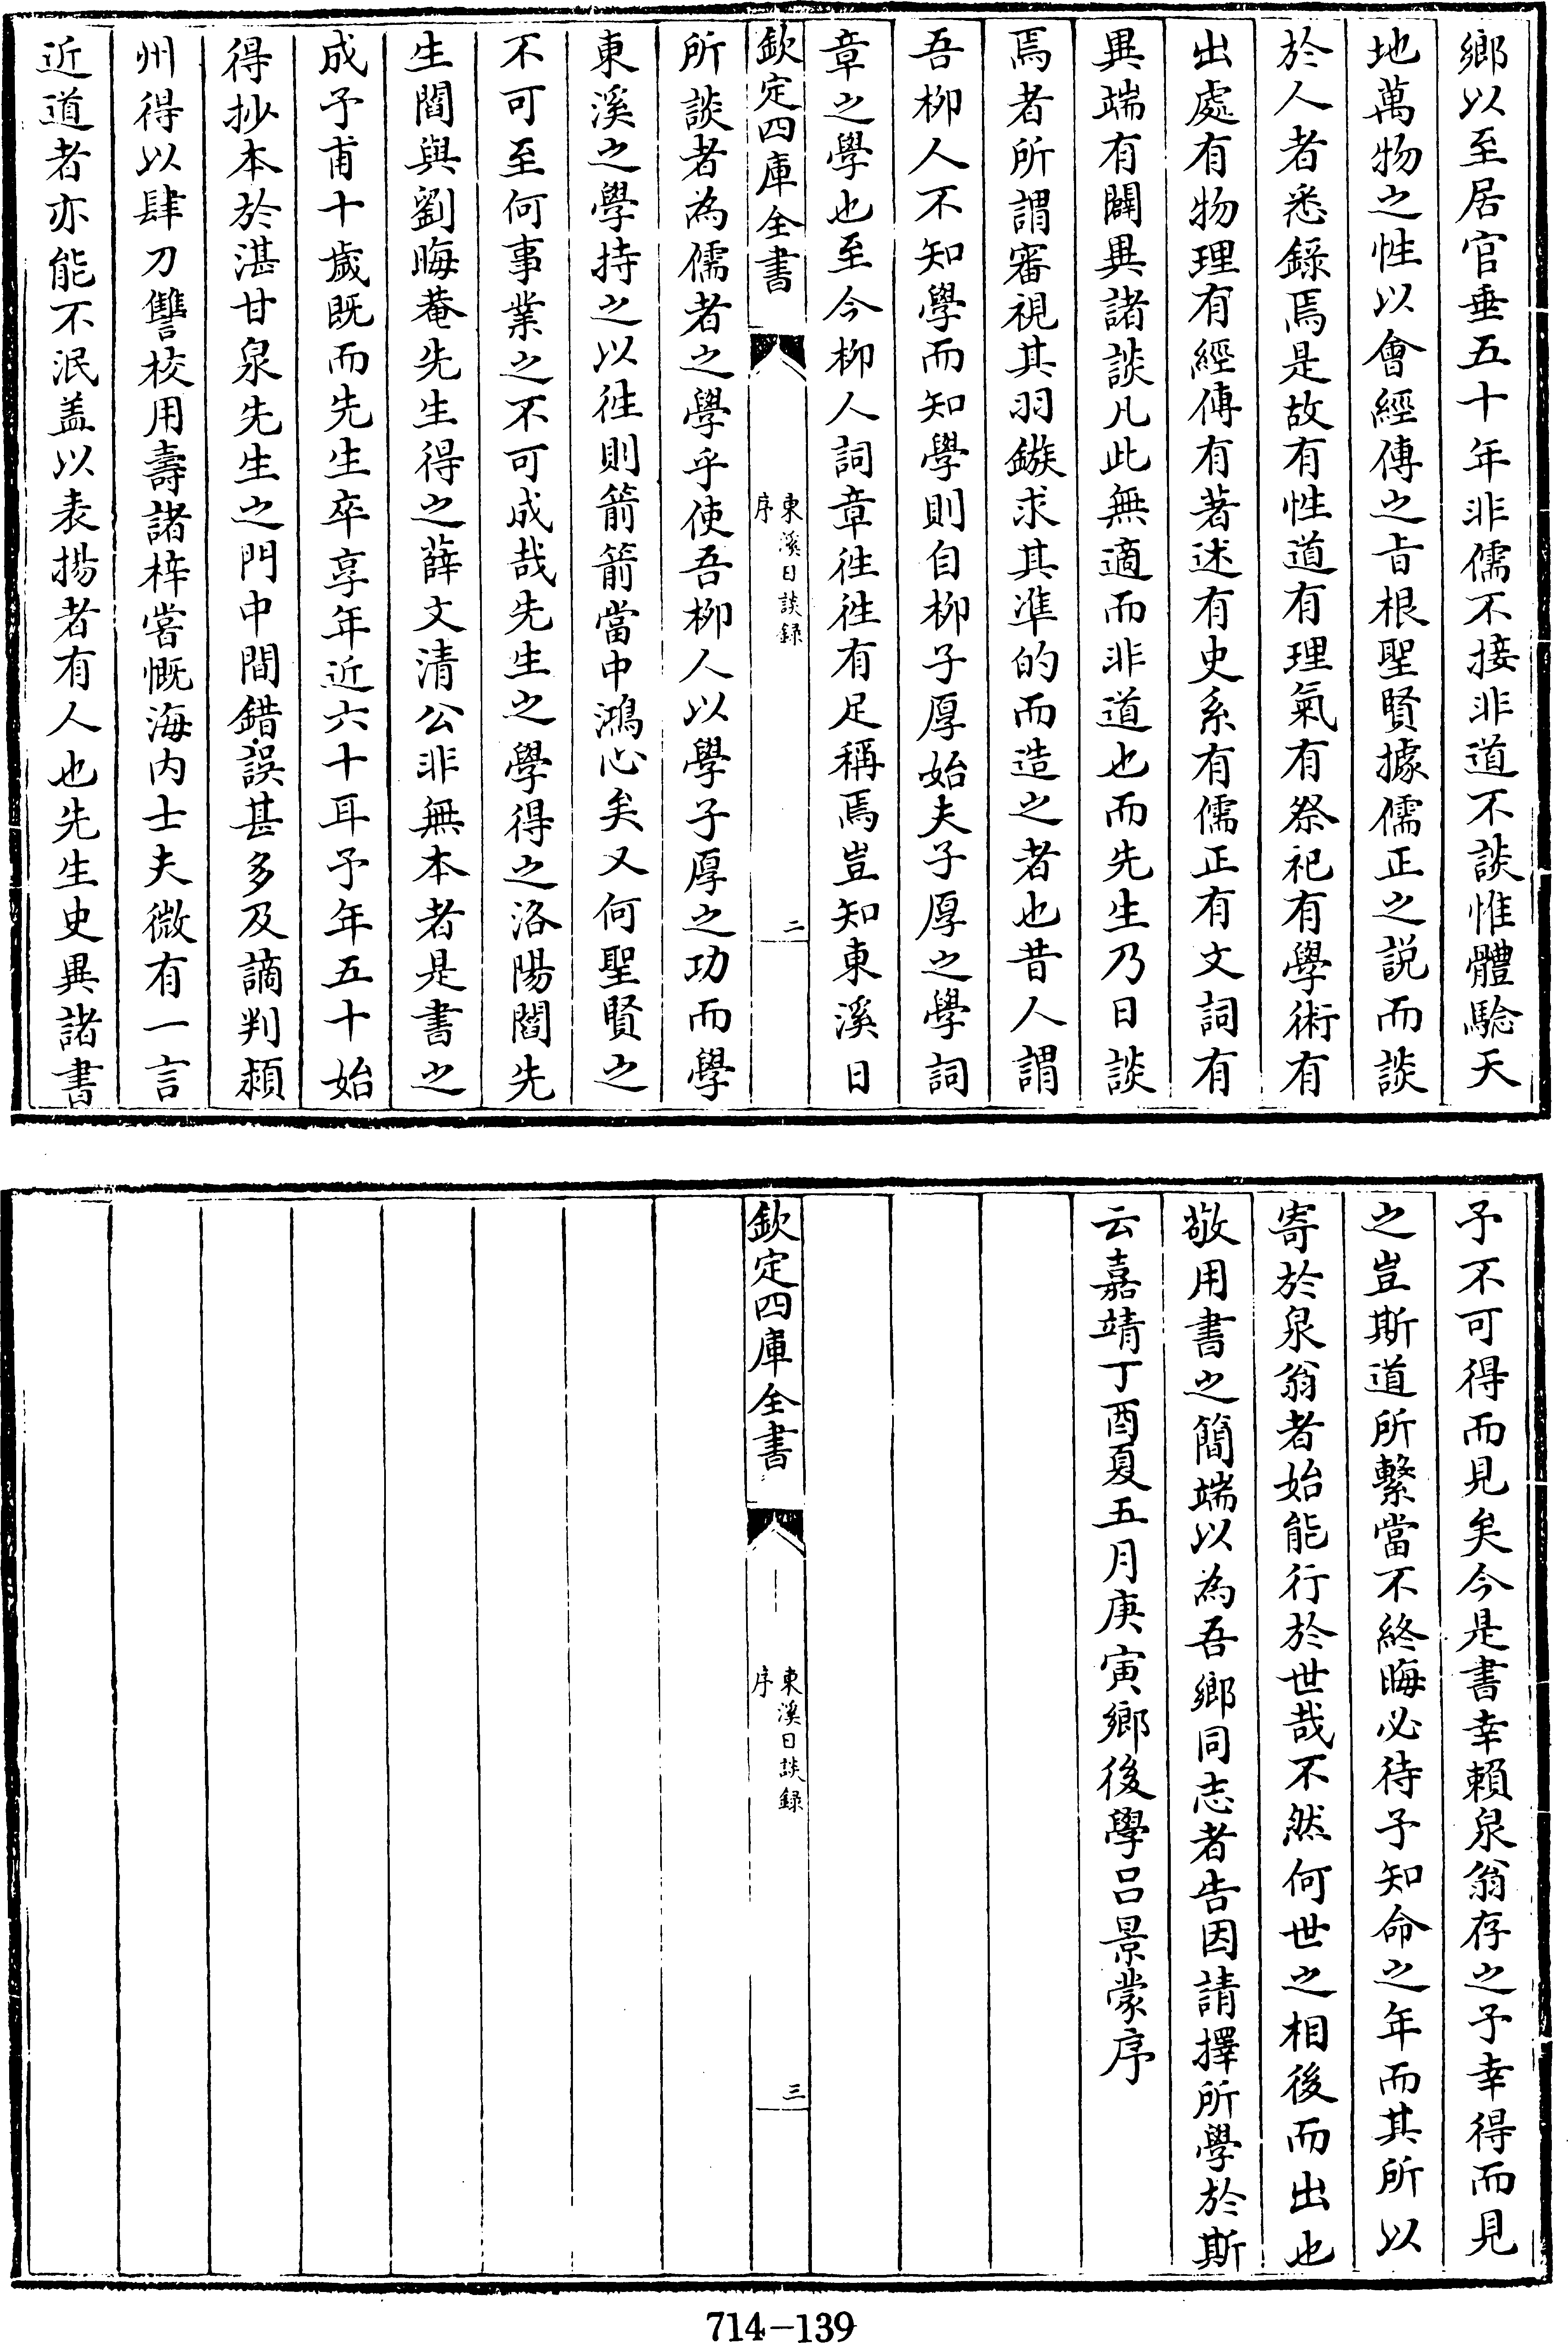 鄉以至居官垂五十年非儒不接非道不談惟體驗天
地萬物之性以會經傳之旨根聖賢據儒正之説而談
於人者悉錄焉是故有性道有理氣有祭祀有學術有
出處有物理有經傳有著述有史系有儒正有文詞有
異端有闢異諸談凡此無適而非道也而先生乃日談
焉者所謂審視其羽鏃求其準的而造之者也昔人謂
吾柳人不知學而知學則自柳子厚始夫子厚之學詞
章之學也至今柳人詞章徃徃有足稱焉豈知東溪日
欽定四庫全書
東溪日談録
序
二
所談者為儒者之學乎使吾柳人以學子厚之功而學
東溪之學持之以徃則箭箭當中鴻心矣又何聖賢之
不可至何事業之不可成哉先生之學得之洛陽閻先
生閻與劉晦菴先生得之薛文清公非無本者是書之
成予甫十歲既而先生卒享年近六十耳予年五十始
得抄本於湛甘泉先生之門中間錯誤甚多及謫判潁
州得以肆刀讐校用壽諸梓嘗慨海内士夫微有一言
近道者亦能不泯盖以表揚者有人也先生史異諸書
予不可得而見矣今是書幸賴泉翁存之予幸得而見
之豈斯道所繫當不終晦必待予知命之年而其所以
寄於泉翁者始能行於世哉不然何世之相後而出也
敬用書之簡端以為吾鄉同志者告因請擇所學於斯
云嘉靖丁酉夏五月庚寅鄉後學吕景蒙序
欽定四庫全書
東溪日談録
序
三
714-139